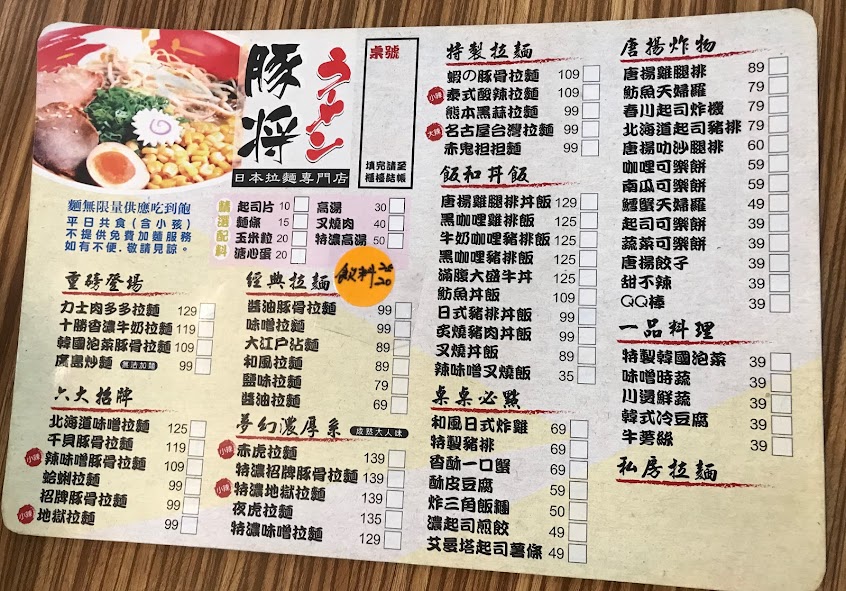 豚将
ラーメン
日本拉麵専門店
桌號
填完請至
櫃檯結帳
麵無限量供應吃到飽
平日共食(含小孩)
不提供免費加麵服務
如有不便,敬請見諒。
精選配料
起司片 10
麵條 15
玉米粒 20
溏心蛋 20
高湯 30
叉燒肉 40
特濃高湯 50
飲料
20
重磅登場
力士肉多多拉麵 129
十勝香濃牛奶拉麵 119
韓國泡菜豚骨拉麵 109
廣島炒麵 無法加麵 99
六大招牌
北海道味噌拉麵 125
干貝豚骨拉麵 119
小辣 辣味噌豚骨拉麵 109
蛤蜊拉麵 99
招牌豚骨拉麵 99
小辣 地獄拉麵 99
經典拉麵
醬油豚骨拉麵 99
味噌拉麵 99
大江戸沾麵 89
和風拉麵 89
鹽味拉麵 79
醬油拉麵 69
夢幻濃厚系 成熟大人味
小辣 赤虎拉麵 139
特濃招牌豚骨拉麵 139
小辣 特濃地獄拉麵 139
夜虎拉麵 135
特濃味噌拉麵 129
特製拉麵
蝦の豚骨拉麵 109
小辣 泰式酸辣拉麵 109
熊本黑蒜拉麵 99
大辣 名古屋台灣拉麵 99
赤鬼担担麵 99
飯和丼飯
唐揚雞腿排丼飯 129
黑咖哩雞排飯 125
牛奶咖哩豬排飯 125
黑咖哩豬排飯 125
滿腹大盛牛丼 125
魴魚丼飯 109
日式豬排丼飯 99
炙燒豬肉丼飯 99
叉燒丼飯 89
辣味噌叉燒飯 35
桌桌必點
和風日式炸雞 69
特製豬排 69
香酥一口蟹 69
酥皮豆腐 59
炸三角飯糰 50
濃起司煎餃 49
艾曼塔起司薯條 49
唐揚炸物
唐揚雞腿排 89
魴魚天婦羅 79
春川起司炸機 79
北海道起司豬排 79
唐揚叻沙腿排 60
咖哩可樂餅 59
南瓜可樂餅 59
鱈蟹天婦羅 49
起司可樂餅 39
蔬菜可樂餅 39
唐揚餃子 39
甜不辣 39
QQ棒 39
一品料理
特製韓國泡菜 39
味噌時蔬 39
川燙鮮蔬 39
韓式冷豆腐 39
牛蒡絲 39
私房拉麵